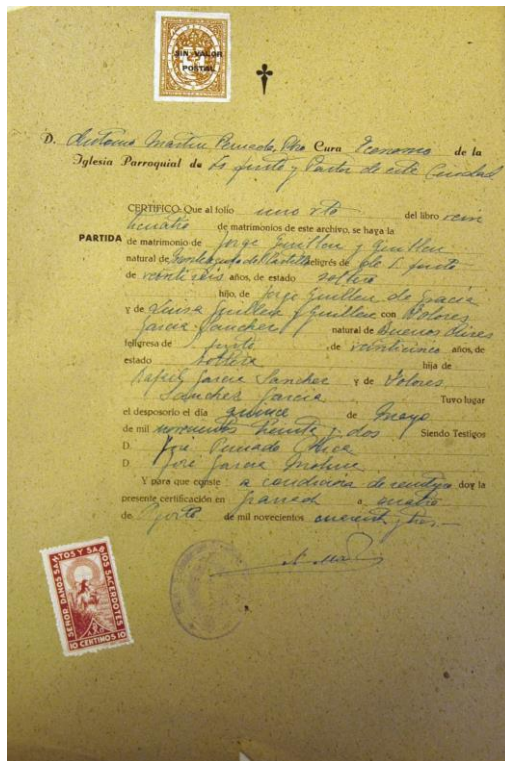 SIN VALOR
POSTAL
D. Antonio Martín Pbro Cura Economo de la
Iglesia Parroquial de Sto Justo y Pastor de esta Ciudad
CERTIFICO: Que al folio uno vto del libro vein
ticuatro de matrimonios de este archivo, se haya la
PARTIDA de matrimonio de Jorge Guillen y Guillen
natural de feligrés de S. Justo
de veintiseis años, de estado soltero
hijo, de Jorge Guillen de Gracia
y de Luisa Guillen y Guillen con Dolores
Garcia Sanchez natural de Buenos Aires
feligresa de S. Justo, de veinticinco años, de
estado soltera hija de
Rafael Garcia Sanchez y de Dolores
Sanchez Garcia. Tuvo lugar
el desposorio el día quince de Mayo
de mil novecientos treinta y dos Siendo Testigos
D. José
D. José Garcia Molina
Y para que conste a condicion de doy la
presente certificación en Granada a cuatro
de Agosto de mil novecientos cuarenta y tres.
SEÑOR DANOS SANTOS Y SABIOS SACERDOTES
10 CENTIMOS 10